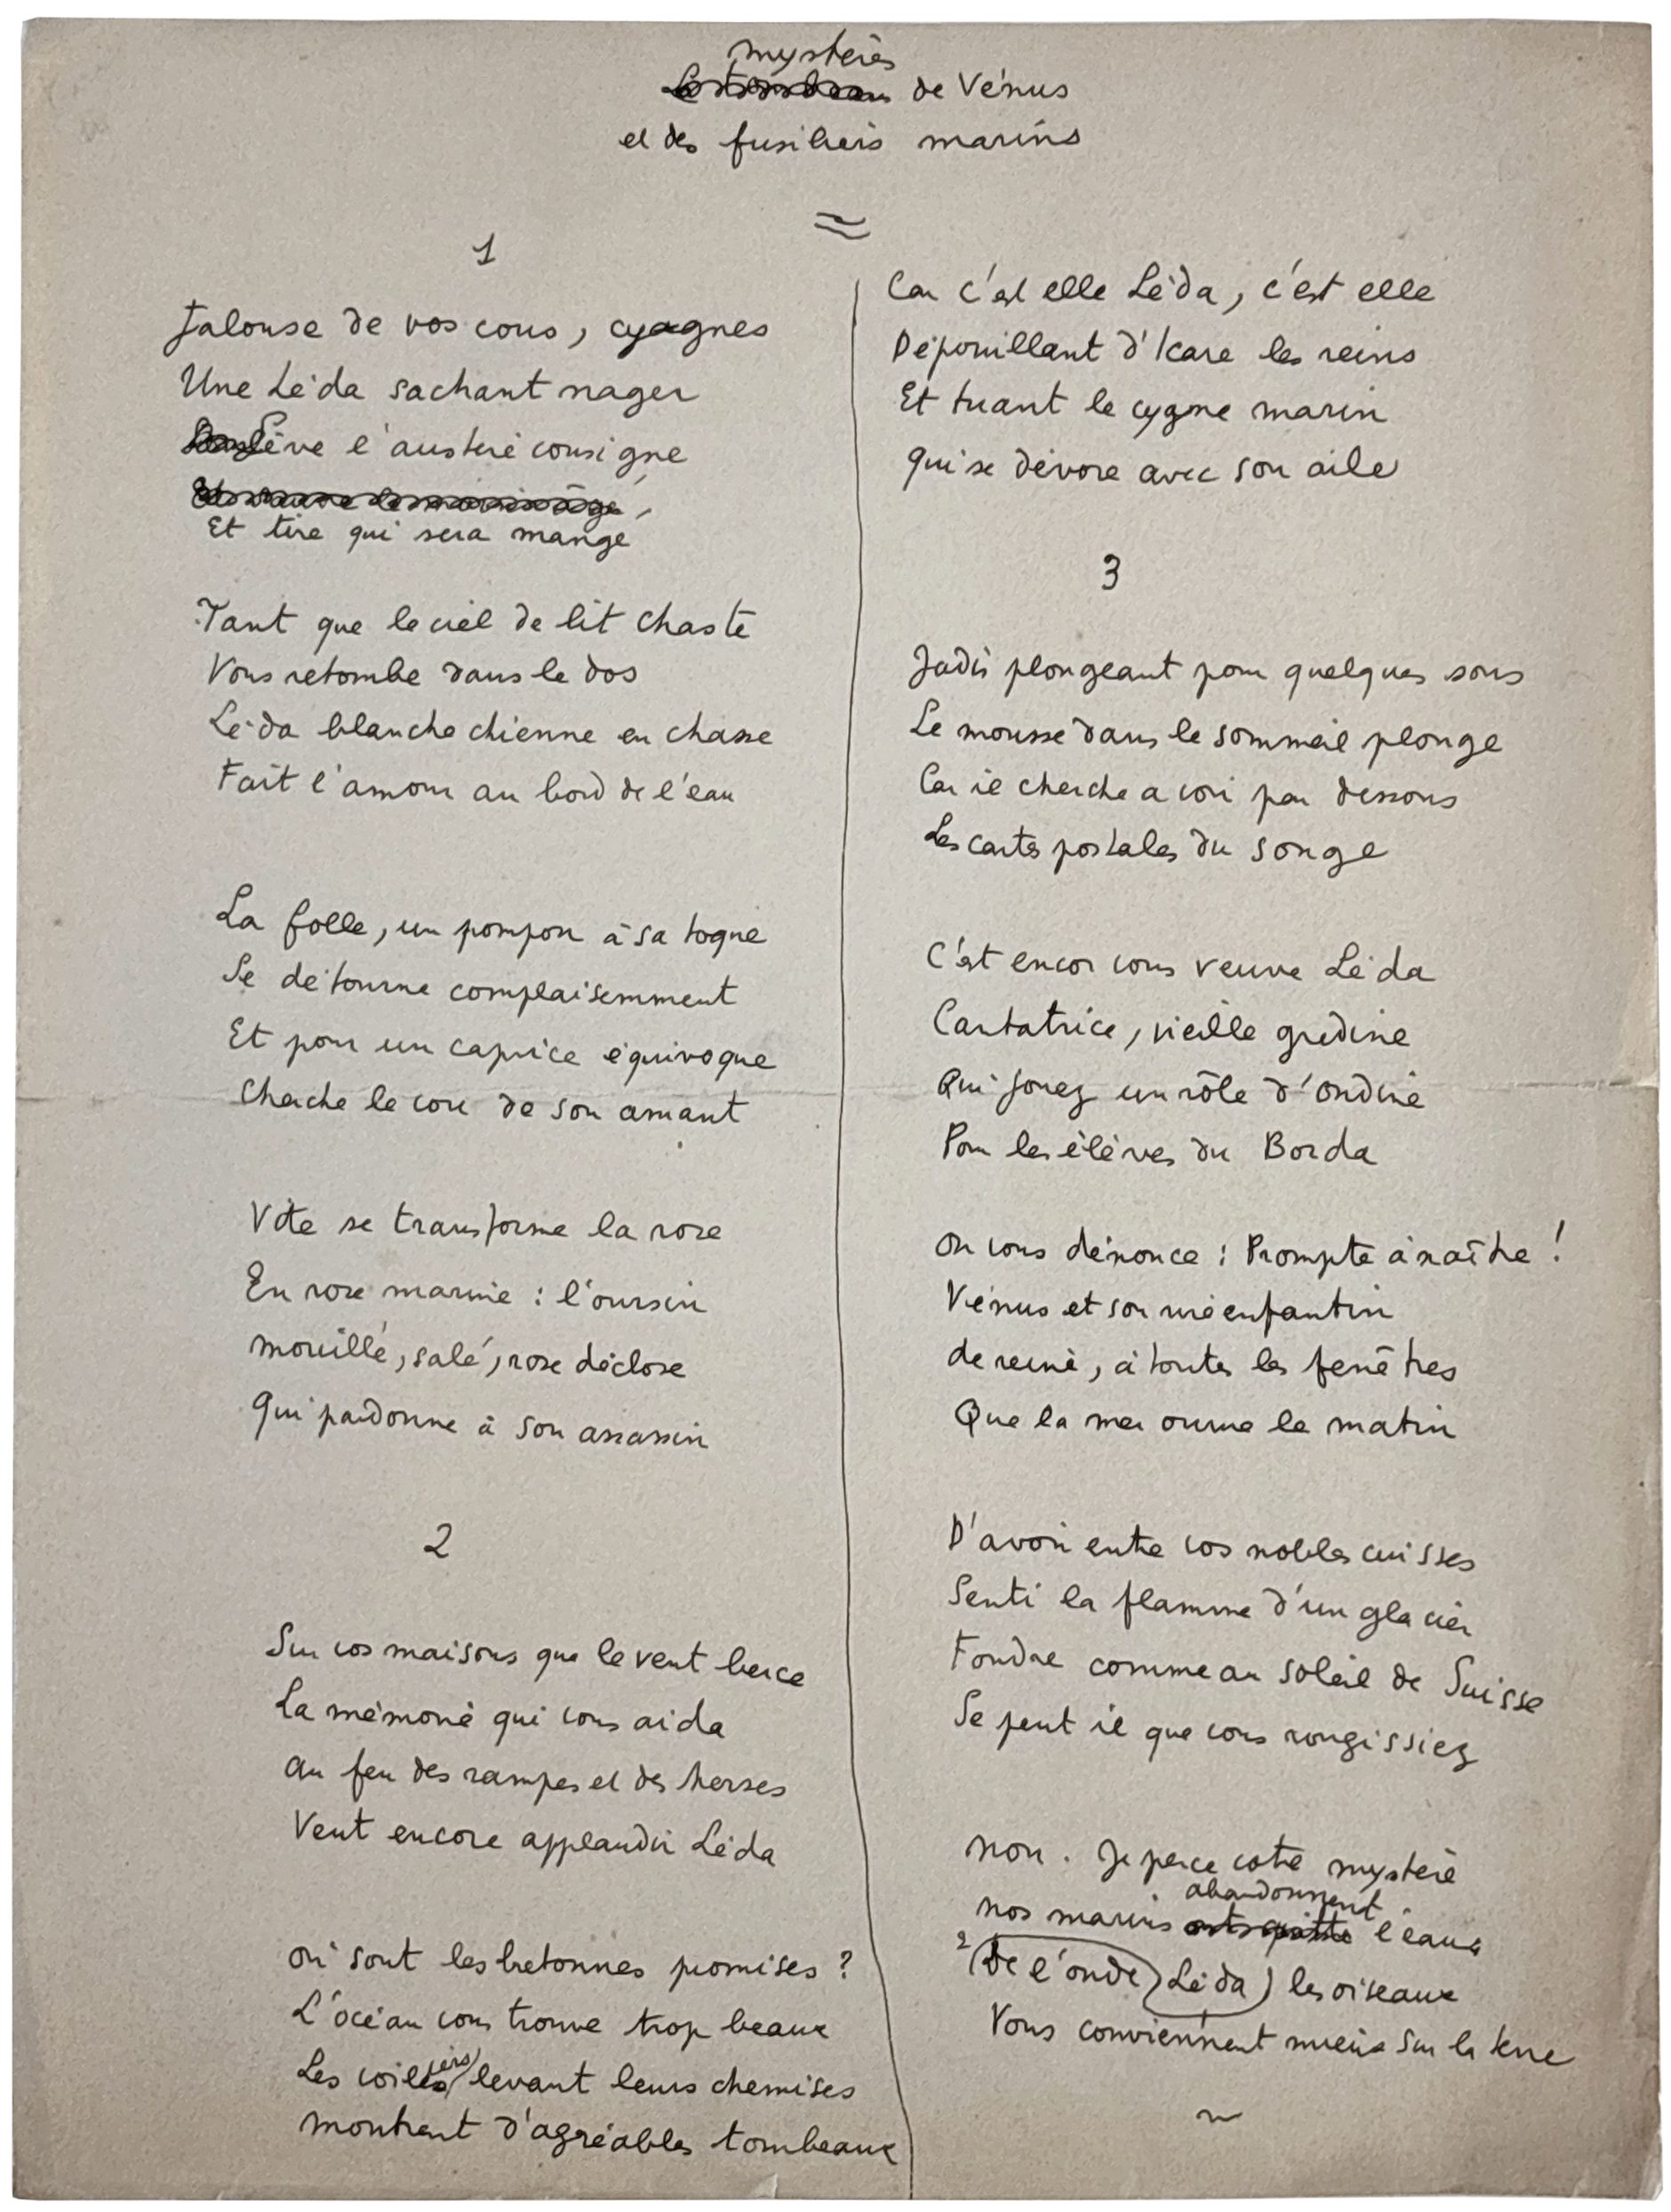 mystères
de Vénus
et des fusiliers marins
1
Jalouse de vos cous, cygnes
Une Léda sachant nager
Lève l'austère consigne
Et tire qui sera mangé
Tant que le ciel de lit chaste
Vous retombe dans le dos
Léda blanche chienne en chasse
Fait l'amour au bord de l'eau
La folle, un pompon à sa toque
Se détourne complaisemment
Et pour un caprice équivoque
Cherche le cou de son amant
Vite se transforme la rose
En rose marine : l'oursin
mouillé, salé, rose déclose
Qui pardonne à son assassin
2
Sur vos maisons que le vent berce
La mémoire qui vous aida
Au feu des rampes et des herses
Veut encore applaudir Léda
Où sont les bretonnes promises ?
L'océan vous trouve trop beaux
Les voiliers levant leurs chemises
montrent d'agréables tombeaux
Car c'est elle Léda, c'est elle
Dépouillant d'Icare les reins
Et tuant le cygne marin
Qui se dévore avec son aile
3
Jadis plongeant pour quelques sous
Le mousse dans le sommeil plonge
Car il cherche a voir par dessous
Les cartes postales du songe
C'est encor vous veuve Léda
Cantatrice, vieille gredine
Qui jouez un rôle d'ondine
Pour les élèves du Borda
On vous dénonce : Prompte à naître !
Vénus et son rire enfantin
de reine, à toutes les fenêtres
Que la mer ouvre le matin
D'avoir entre vos nobles cuisses
Senti la flamme d'un glacier
Fondre comme au soleil de Suisse
Se peut il que vous rougissiez
non. Je perce votre mystère
abandonnent
nos marins l'eau
2 (De l'onde) Léda) les oiseaux
Vous conviennent mieux sur la terre